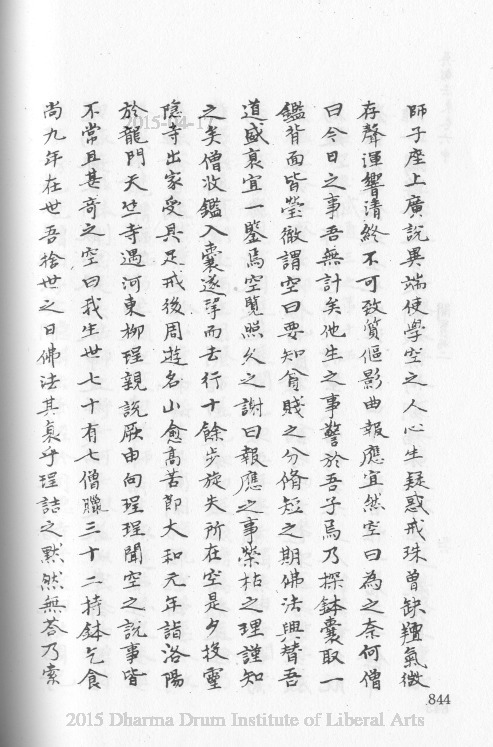 師子座上廣說異端使學空之人心生疑惑戒珠曾缺羶氣微
存聲渾響清終不可致質傴影曲報應宜然空曰為之奈何僧
曰今日之事吾無計矣他生之事警於吾子焉乃探鉢囊取一
鑑背面皆瑩徹謂空曰要知貧賤之分脩短之期佛法興替吾
道盛衰宜一鑒焉空覽照久之謝曰報應之事榮枯之理謹知
之矣僧收鑑入囊遂挈而去行十餘步旋失所在空是夕投靈
隐寺出家受具足戒後周遊名山愈高苦節大和元年詣洛陽
於龍門天竺寺遇河東柳珵親說厥由向珵珵聞空之說事皆
不常且甚奇之空曰我生世七十有七僧臘三十二持鉢乞食
尚九年在世吾捨世之日佛法其衰乎珵詰之默然無荅乃索
844
2015-04-17
2015 Dharma Drum Institute of Liberal Arts